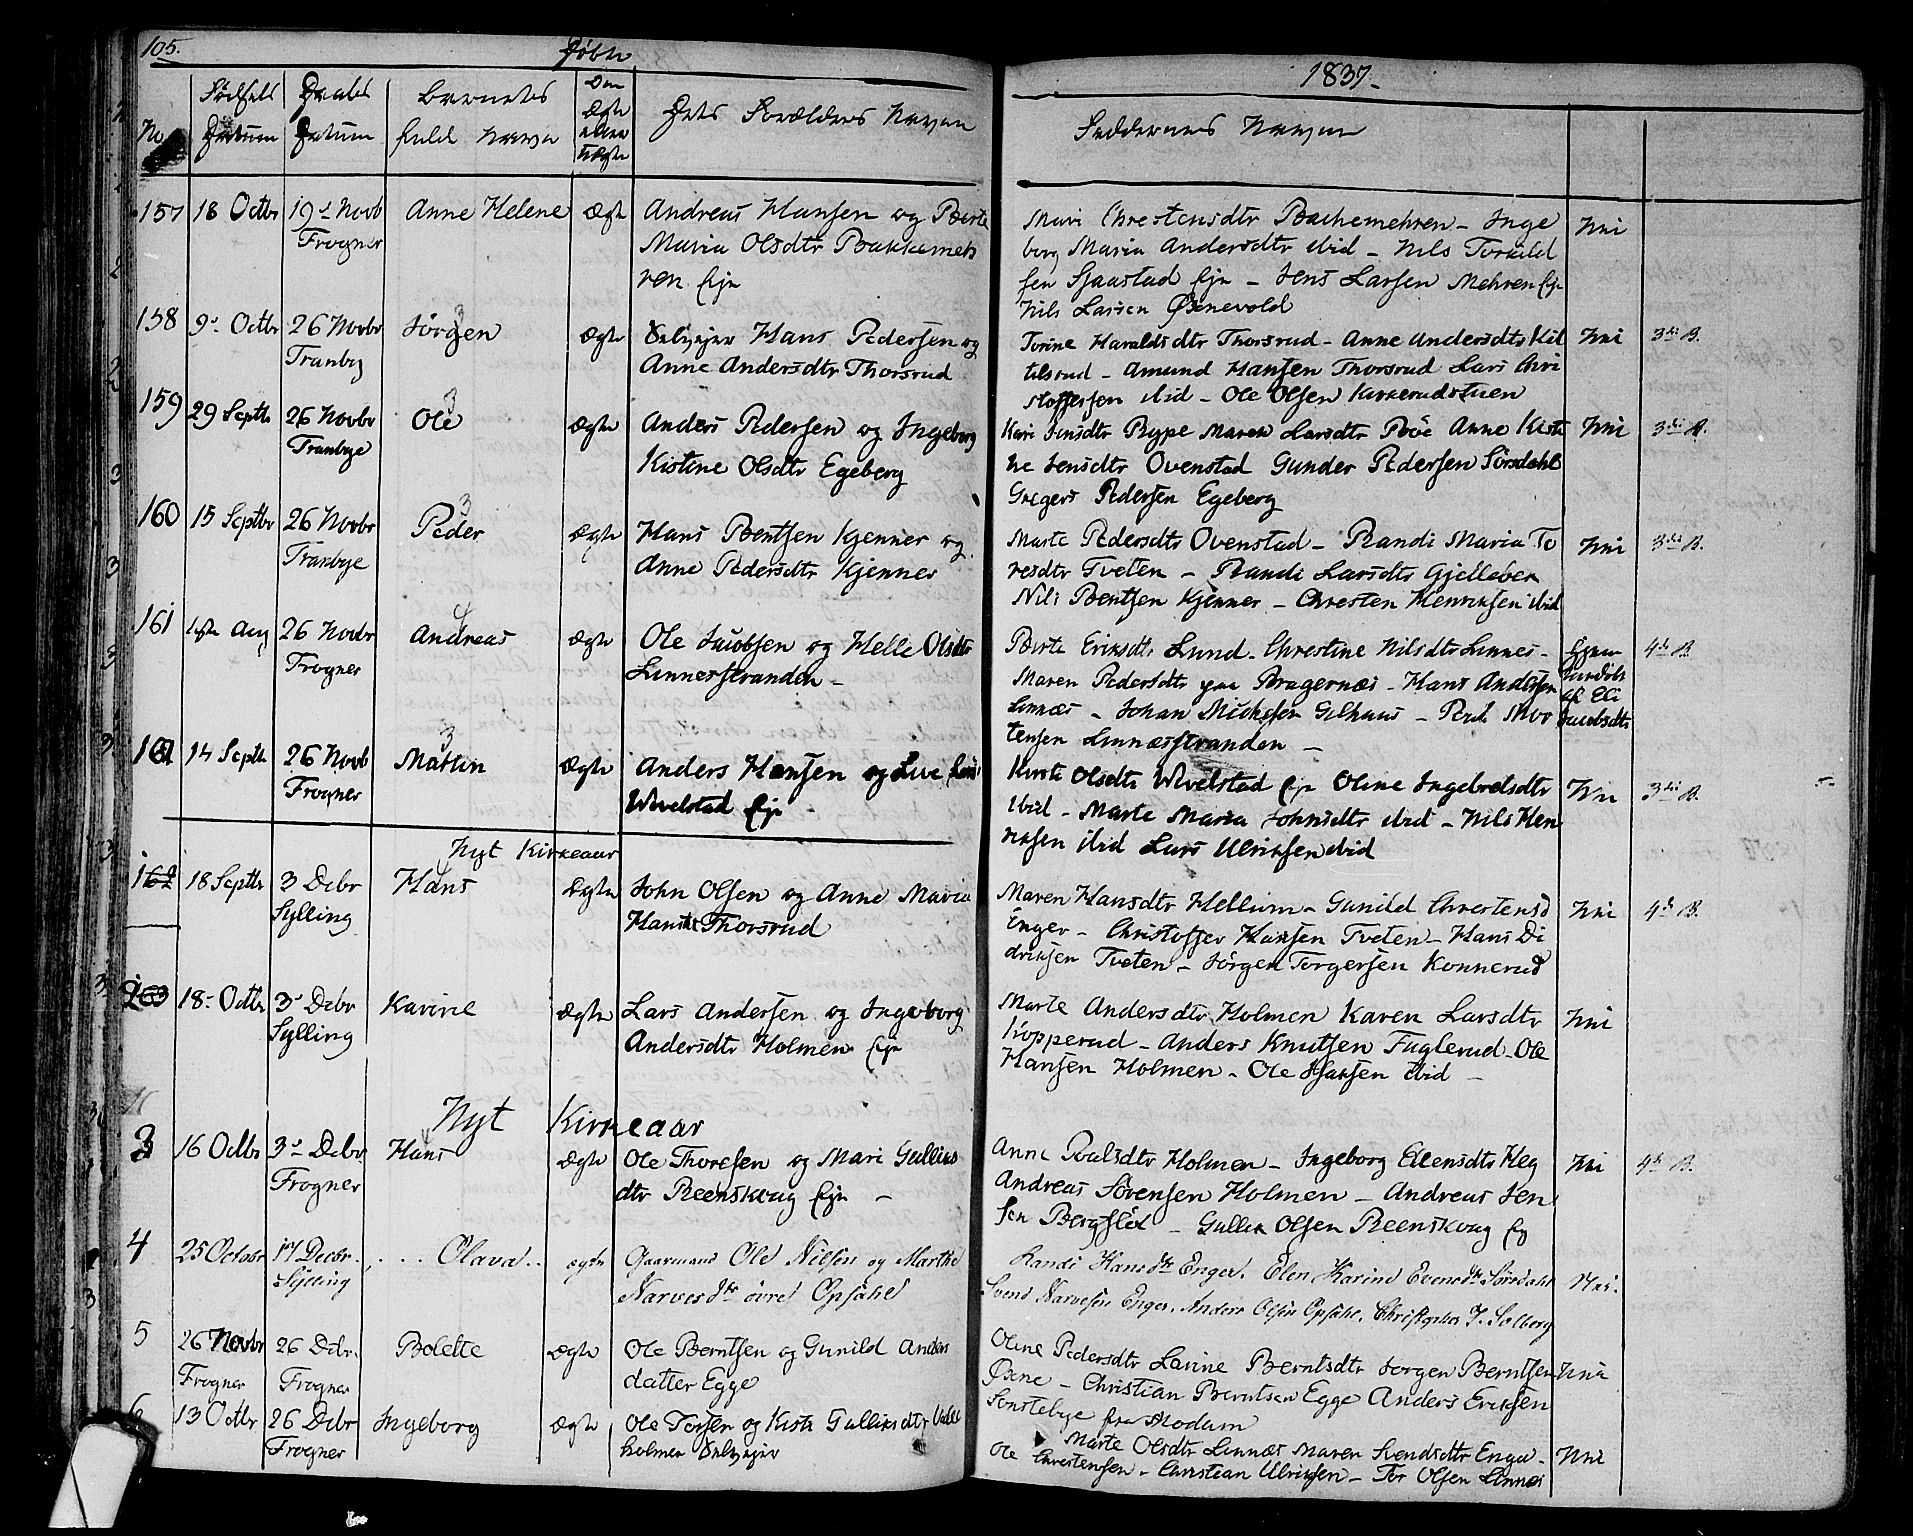 105.
Døbte
1837.
No
Fødsels Datum
Daabs Datum
Barnets fuld Navn
Om Ægte eller Uægte
Dets Forældres Navne
Faddernes Navne
157 18 Octbr 19de Novb Frogner Anne Helene Ægte
Andreas Hansen og Berte
Maria Olsdtr Bakkemeh
ren Eje
Mari Christensdtr Bachemehren - Inge
borg Maria Andersdtr ibid - Nils Torkild
sen Sjaastad Eje - Jens Larsen Mehren Eje
Nils Larsen Øxnevold
158 9de Octbr 26 Novbr Tranby Jørgen 3 Ægte
Selvejer Hans Pedersen og
Anne Andersdtr Thorsrud
Torine Haraldsdtr Thorsrud - Anne Andersdtr Kit
tilsrud - Amund Hansen Thorsrud Lars Chri
stoffersen ibid - Ole Olsen Kirkerudstuen
3die B.
159 29 Septbr 26 Novbr Tranbye Ole 3 Ægte
Anders Pedersen og Ingeborg
Kistine Olsdtr Egeberg
Kari Jensdtr Rype Maren Larsdtr Anne Kisti
ne Jensdtr Ovenstad Gunder Pedersen Sørsdahl
Gregers Pedersen Egeberg
3die B.
160 15 Septbr 26 Novbr Tranbye Peder 3 Ægte
Hans Bentsen Kjenner og
Anne Pedersdtr Kjenner
Marte Pedersdtr Ovenstad - Randi Maria To
resdtr Tveten - Randi Larsdtr Gjellebek
Nils Bentsen Kjenner - Christen Henriksen ibid
3die B.
161 Aug 26 Novbr Frogner Andreas 4 Ægte
Ole Jacobsen og Helle Olsdtr
Linnesstranden -
Berte Eriksdtr Lund - Christine Nilsdtr Linnes -
Maren Pedersdtr paa Bragernæs - Hans Andersen
Linnæs - Johan Michelsen Gilhuus - Peder Mor
tensen Linnæsstranden -
Hjemmedøbt af Eli Jacobsdtr
4de B.
161 14 Septbr 26 Novb Frogner Martin 3 Ægte
Anders Hansen og Live
Wivelstad Eje
Kirsti Olsdtr Wivelstad Eje Oline Ingebretsdtr
ibid - Marte Maria Johnsdtr ibid - Nils Hen
riksen ibid Lars Ulriksen ibid
3die B.
Nyt Kirkeaar
162 18 Septbr 3 Debr Sylling Hans 4 Ægte
John Olsen og Anne Maria
Hansdtr Thorsrud
Maren Hansdtr Hellum - Gunild Christensd
Enger - Christoffer Hansen Tveten - Hans Di
driksen Tveten - Jørgen Torgersen Konnerud
4de B.
2 18de Octbr 3de Debr Sylling Karine Ægte
Lars Andersen og Ingeborg
Andersdtr Holmen Eje
Marte Andersdtr Holmen Karen Larsdtr
Kopperud - Anders Knutsen Fuglerud - Ole
Hansen Holmen - Ole Isaksen ibid -
Nyt Kirkeaar
3 16 Octbr 3de Debr Frogner Hans 4 Ægte
Ole Thoresen og Mari Gulliks
dtr Reenskoug Eje -
Anne Paalsdtr Holmen - Ingeborg Ellensdtr Heg
Andreas Sørensen Holmen - Andreas Jen
sen BergflØt - Gullik Olsen Reenskoug Eje
4de B.
4 25 Octobr 17 Decbr Sylling .... Olava .. ægte
Gaarmand Ole Nilsen og Marthe
Narvesdtr øvre Opsahl
Randi Hansdtr Enger. Elen Karine Evensdtr Sørsdahl
Svend Narvesen Enger. Anders Olsen Opsahl. Christopher J. Solberg
5 26 Novbr Frogner 26 Debr Frogner Bolette Ægte
Ole Berntsen og Gunild Anders
datter Egge
Oline Pedersdtr Lavine Berntsdtr Jørgen Berntsen
Øxne - Christian Berntsen Egge Anders Eriksen
Sønstebye fra Modum
6 13 Octbr 26 Debr Frogner Ingeborg Ægte
Ole Torsen og Kisti Gulliksdtr
holmen Selvejer
Marte Olsdtr Linnæs Maren Svendsdtr Enger -
Ole Christensen - Christian Ulriksen - Tor Olsen Linnæs